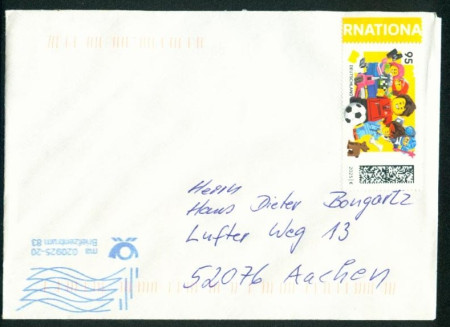 RNATIONA
95
DEUTSCHLAND
Herrn
Hans Dieter Bongartz
Lufter Weg 13
52076 Aachen
ma 020925-20
Briefzentrum 83